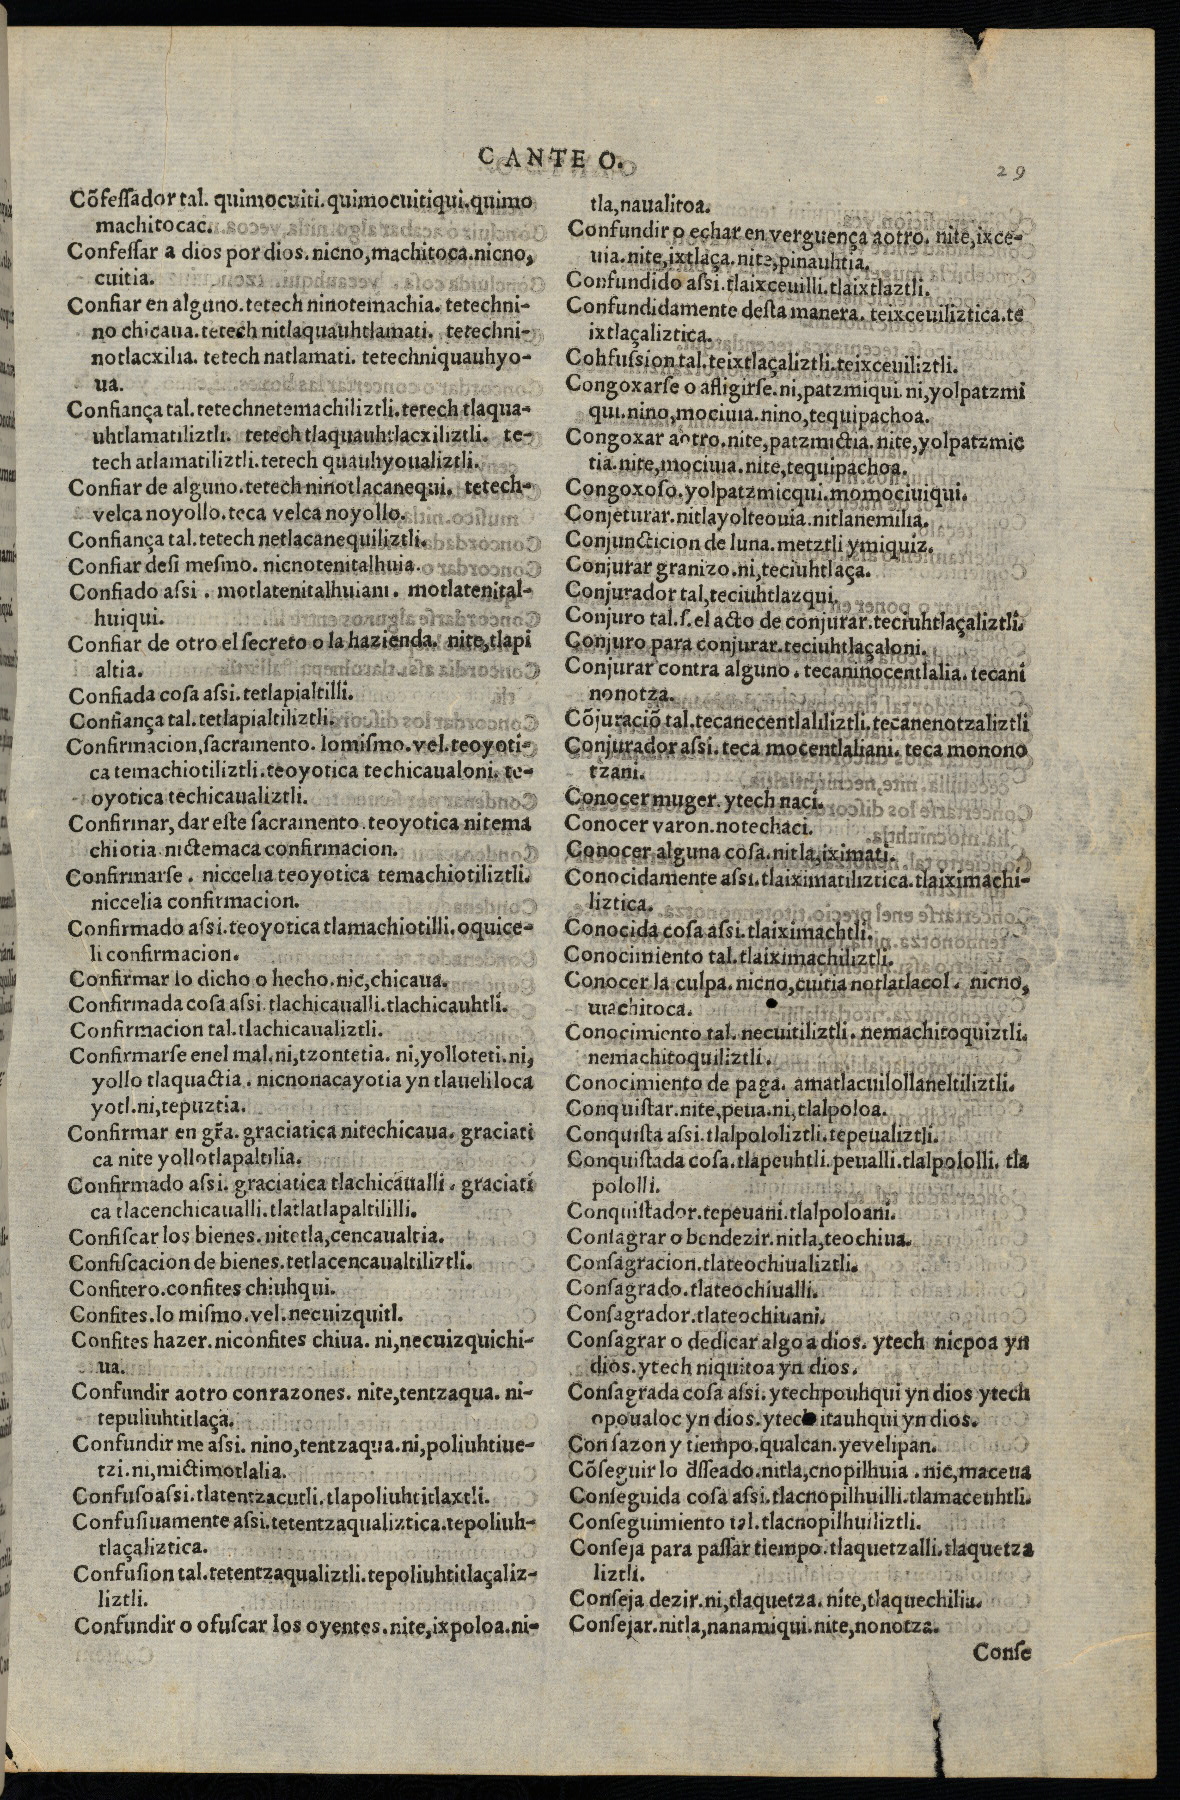 CANTE O.
29
Cõfeſſador tal. quimocuiti. quimocuitiqui. quimo
machitocac.
Confeſſar a dios por dios. nicno, machitoca. nicno,
cuitia.
Confiar en alguno. tetech ninotemachia. tetechni-
no chicaua. tetech nitlaquauhtlamati. tetechni-
notlacxilia. tetech natlamati. tetechniquauhyo-
ua.
Confiança tal. tetechnetemachiliztli. tetech tlaqua-
uhtlamatiliztli. tetech tlaquauhtlacxiliztli. te-
tech atlamatiliztli. tetech quauhyoualiztli.
Confiar de alguno. tetech ninotlacanequi. tetech-
velca noyollo. teca velca noyollo.
Confiança tal. tetech netlacanequiliztli.
Confiar deſi meſmo. nicnotenitalhuia.
Confiado aſsi. motlatenitalhuiani. motlatenital-
huiqui.
Confiar de otro el ſecreto o la hazienda. nite, tlapi
altia.
Confiada coſa aſsi. tetlapialtilli.
Confiança tal. tetlapialtiliztli.
Confirmacion, ſacramento. lo miſmo. vel. teoyoti-
ca temachiotiliztli. teoyotica techicaualoni. te-
oyotica techicaualiztli.
Confirmar, dar eſte ſacramento. teoyotica nitema
chiotia. nictemaca confirmacion.
Confirmarſe. niccelia teoyotica temachiotiliztli.
niccelia confirmacion.
Confirmado aſsi. teoyotica tlamachiotilli. oquice-
li confirmacion.
Confirmar lo dicho o hecho. nic, chicaua.
Confirmada coſa aſsi. tlachicaualli. tlachicauhtli.
Confirmacion tal. tlachicaualiztli.
Confirmarſe enel mal. ni, tzontetia. ni, yolloteti. ni,
yollo tlaquactia. nicnonacayotia yn tlaueliloca
yotl. ni, tepuztia.
Confirmar en gr̃a. graciatica nitechicaua. graciati
ca nite yollotlapaltilia.
Confirmado aſsi. graciatica tlachicaualli. graciati
ca tlacenchicaualli. tlatlatlapaltililli.
Confiſcar los bienes. nitetla, cencaualtia.
Confiſcacion de bienes. tetlacencaualtiliztli.
Confitero. confites chiuhqui.
Confites. lo miſmo. vel. necuizquitl.
Confites hazer. niconfites chiua. ni, necuizquichi-
ua.
Confundir aotro con razones. nite, tentzaqua. ni-
tepuliuhtitlaça.
Confundir me aſsi. nino, tentzaqua. ni, poliuhtiue-
tzi. ni, mictimotlalia.
Confuſo aſsi. tlatentzacutli. tlapoliuhtitlaxtli.
Confuſiuamente aſsi. tetentzaqualiztica. tepoliuh-
tlaçaliztica.
Confuſion tal. tetentzaqualiztli. tepoliuhtitlaçaliz-
liztli.
Confundir o ofuſcar los oyentes. nite, ixpoloa. ni-
tla, naualitoa.
Confundir o echar en verguença aotro. nite, ixce-
uia. nite, ixtlaça. nite, pinauhtia.
Confundido aſsi. tlaixceuilli. tlaixtlaztli.
Confundidamente deſta manera. teixceuiliztica. te
ixtlaçaliztica.
Cohfuſsion tal. teixtlaçaliztli. teixceuiliztli.
Congoxarſe o afligirſe. ni, patzmiqui. ni, yolpatzmi
qui. nino, mociuia. nino, tequipachoa.
Congoxar aotro. nite, patzmictia. nite, yolpatzmic
tia. nite, mociuia. nite, tequipachoa.
Congoxoſo. yolpatzmicqui. momociuiqui.
Conjeturar. nitlayolteouia. nitlanemilia.
Conjuncticion de luna. metztli ymiquiz.
Conjurar granizo. ni, teciuhtlaça.
Conjurador tal, teciuhtlazqui.
Conjuro tal. ſ. el acto de conjurar. teciuhtlaçaliztli.
Conjuro para conjurar. teciuhtlaçaloni.
Conjurar contra alguno. tecaninocentlalia. tecani
nonotza.
Cõjuraciõ tal. tecanecentlaliliztli. tecanenotzaliztli
Conjurador aſsi. teca mocentlaliani. teca monono
tzani.
Conocer muger. ytech naci.
Conocer varon. notechaci.
Conocer alguna coſa. nitla, iximati.
Conocidamente aſsi. tlaiximatiliztica. tlaiximachi-
liztica.
Conocida coſa aſsi. tlaiximachtli.
Conocimiento tal. tlaiximachiliztli.
Conocer la culpa. nicno, cuitia notlatlacol. nicno,
machitoca.
Conocimiento tal. necuitiliztli. nemachitoquiztli.
nemachitoquiliztli.
Conocimiento de paga. amatlacuilollaneltiliztli.
Conquiſtar. nite, peua. ni, tlalpoloa.
Conquiſta aſsi. tlalpololiztli. tepeualiztli.
Conquiſtada coſa. tlapeuhtli. peualli. tlalpololli. tla
pololli.
Conquiſtador. tepeuani. tlalpoloani.
Conſagrar o bendezir. nitla, teochiua.
Conſagracion. tlateochiualiztli.
Conſagrado. tlateochiualli.
Conſagrador. tlateochiuani.
Conſagrar o dedicar algo a dios. ytech nicpoa yn
dios. ytech niquitoa yn dios.
Conſagrada coſa aſsi. ytechpouhqui yn dios ytech
opoualoc yn dios. ytech itauhqui yn dios.
Con ſazon y tiempo. qualcan. yevelipan.
Cõſeguir lo d̃ſſeado. nitla, cnopilhuia. nic, maceua
Conſeguida coſa aſsi. tlacnopilhuilli. tlamaceuhtli.
Conſeguimiento tal. tlacnopilhuiliztli.
Conſeja para paſſar tiempo. tlaquetzalli. tlaquetza
liztli.
Conſeja dezir. ni, tlaquetza. nite, tlaquechilia.
Conſejar. nitla, nanamiqui. nite, nonotza.
Conſe